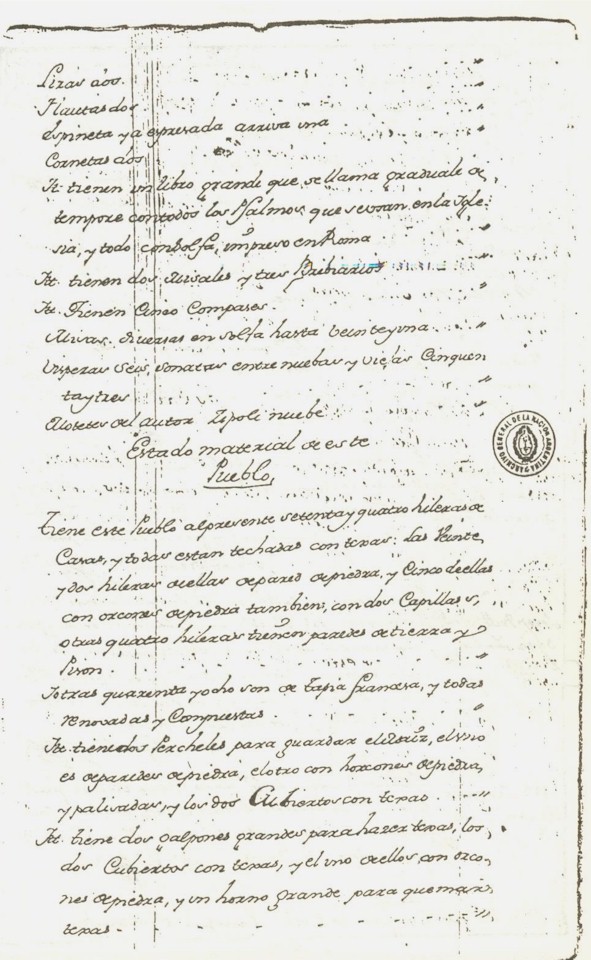 Liras dos.
Flautas dos
Espineta ya espresada arriva una
Cornetas dos
It. tienen un libro grande que se llama graduale de
tempore contodos los Psalmos que seusan en la Igle-
sia, y todo con Solfa, impreso en Roma
It. tienen dos Misales y tres Bribiarios
It. Tienen Cinco Compases.
Misas diversas en solfa hasta veinte y una
Visperas Seis, sonatas entre nuebas y viejas Cinquen
ta y tres
Motetes del autor Zipoli nuebe
Estado material de este
Pueblo,
Tiene este Pueblo alpresente setenta y quatro hileras de
Casas, y todas estan techadas con texas: Las Veinte
y dos hileras deellas depared depiedra, y Cinco deellas
con orcones depiedra tambien, con dos Capillas,
otras quatro hileras tienen paredes detierra y
Pison.
Iotras quarenta yocho son de tapia francesa, y todas
renovadas y Compuestas.
It. tiene dos Percheles para guardar el Maiz, el uno
es deparedes depiedra, el otro con horcones depiedra,
y palisadas, y los dos Cubiertos con texas.
It. tiene dos galpones grandes para hazer texas, los
dos Cubiertos con texas, y el uno deellos con orco-
nes depiedra, y un horno grande para quemar
texas.
ARCHIVO GENERAL DE LA NACION ARGENTINA